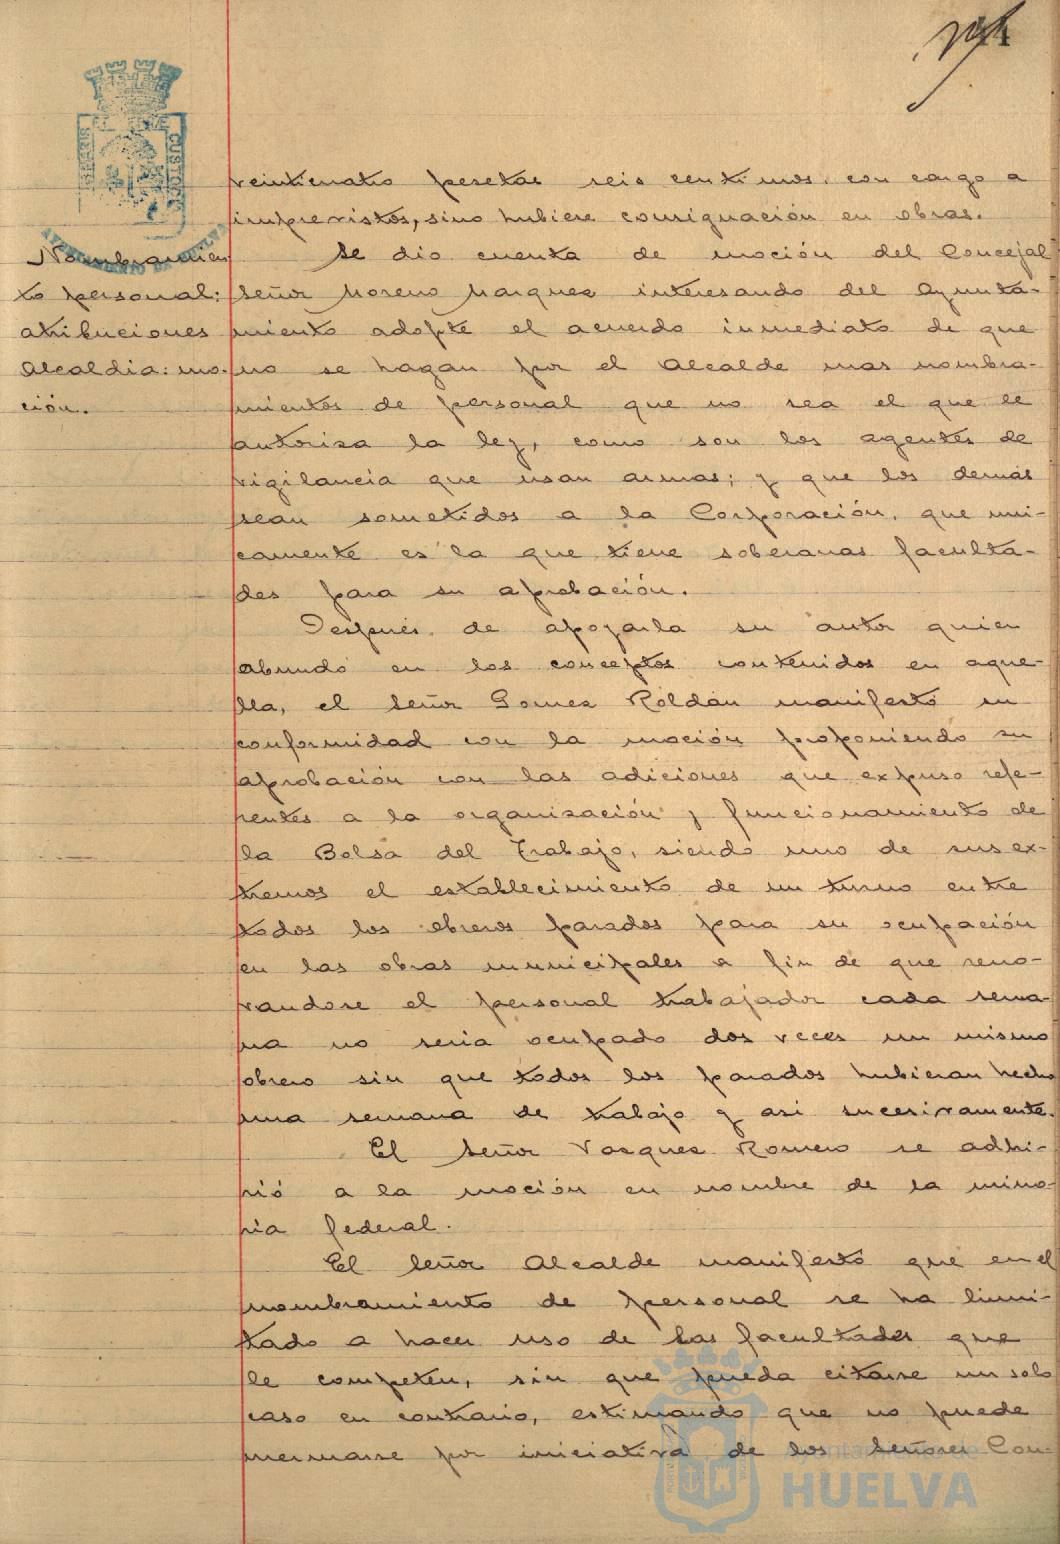 veinticuatro pesetas seis centimos, con cargo a
imprevistos, sino hubiere consignación en obras.
Nombramien
to personal:
atribuciones
Alcaldia: mo-
ción.
Se dio cuenta de moción del Concejal
Señor Moreno Marquez interesando del Ayunta-
miento adopte el acuerdo inmediato de que
no se hagan por el Alcalde mas nombra-
mientos de personal que no sea el que le
autoriza la ley, como son los agentes de
vigilancia que usan armas; y que los demás
sean sometidos a la Corporación, que uni-
camente es la que tiene soberanas faculta-
des para su aprobación.
Después de apoyarla su autor quien
abundó en los conceptos contenidos en aque-
lla, el Señor Gomez Roldán manifestó su
conformidad con la moción proponiendo su
aprobación con las adiciones que expuso refe-
rentes a la organización y funcionamiento de
la Bolsa del Trabajo, siendo uno de sus ex-
tremos el establecimiento de un turno entre
todos los obreros parados para su ocupación
en las obras municipales a fin de que reno-
vandose el personal trabajador cada sema-
na no seria ocupado dos veces un mismo
obrero sin que todos los parados hubieran hecho
una semana de trabajo y asi sucesivamente.
El Señor Vazquez Romero se adhi-
rió a la moción en nombre de la mino-
ria federal.
El Señor Alcalde manifestó que en el
nombramiento de personal se ha limi-
tado a hacer uso de las facultades que
le competen, sin que pueda citarse un solo
caso en contrario, estimando que no puede
mermarse por iniciativa de los Señores Con-
Ayuntamiento de
HUELVA